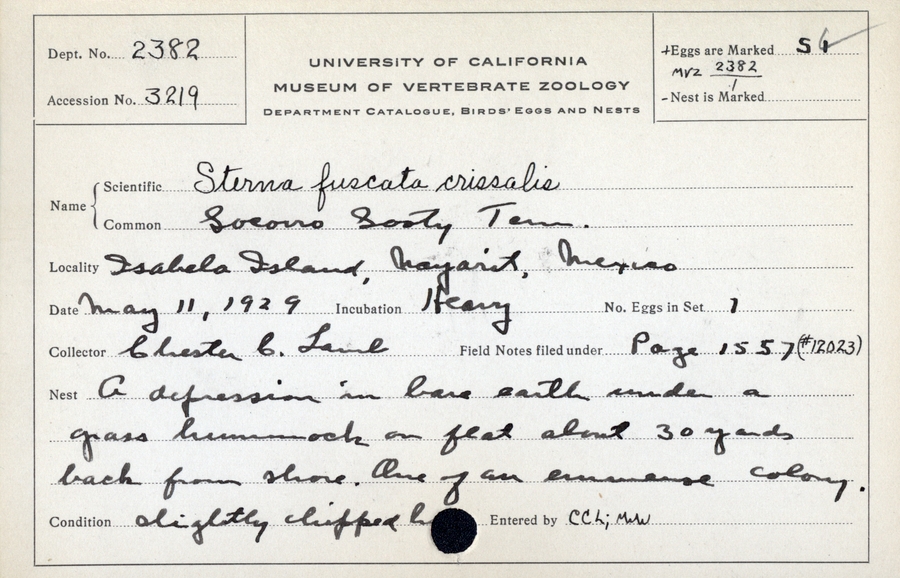 Dept. No. 2382
Accession No. 3219
UNIVERSITY OF CALIFORNIA
MUSEUM OF VERTEBRATE ZOOLOGY
DEPARTMENT CATALOGUE, BIRDS' EGGS AND NESTS
+Eggs are Marked
MVZ 2382/1
-Nest is Marked
Name
Scientific Sterna fuscata crissalis
Common Socorro Sooty Tern.
Locality Isabela Island, Nayarit, Mexico
Date May 11, 1929 Incubation Heavy No. Eggs in Set 1
Collector Chester C. Lamb Field Notes filed under Page 1557 (#12023)
Nest A depression in bare earth under a
grass hummock on flat about 30 yards
back from shore. One of an immense colony.
Condition slightly chipped Entered by CCL;